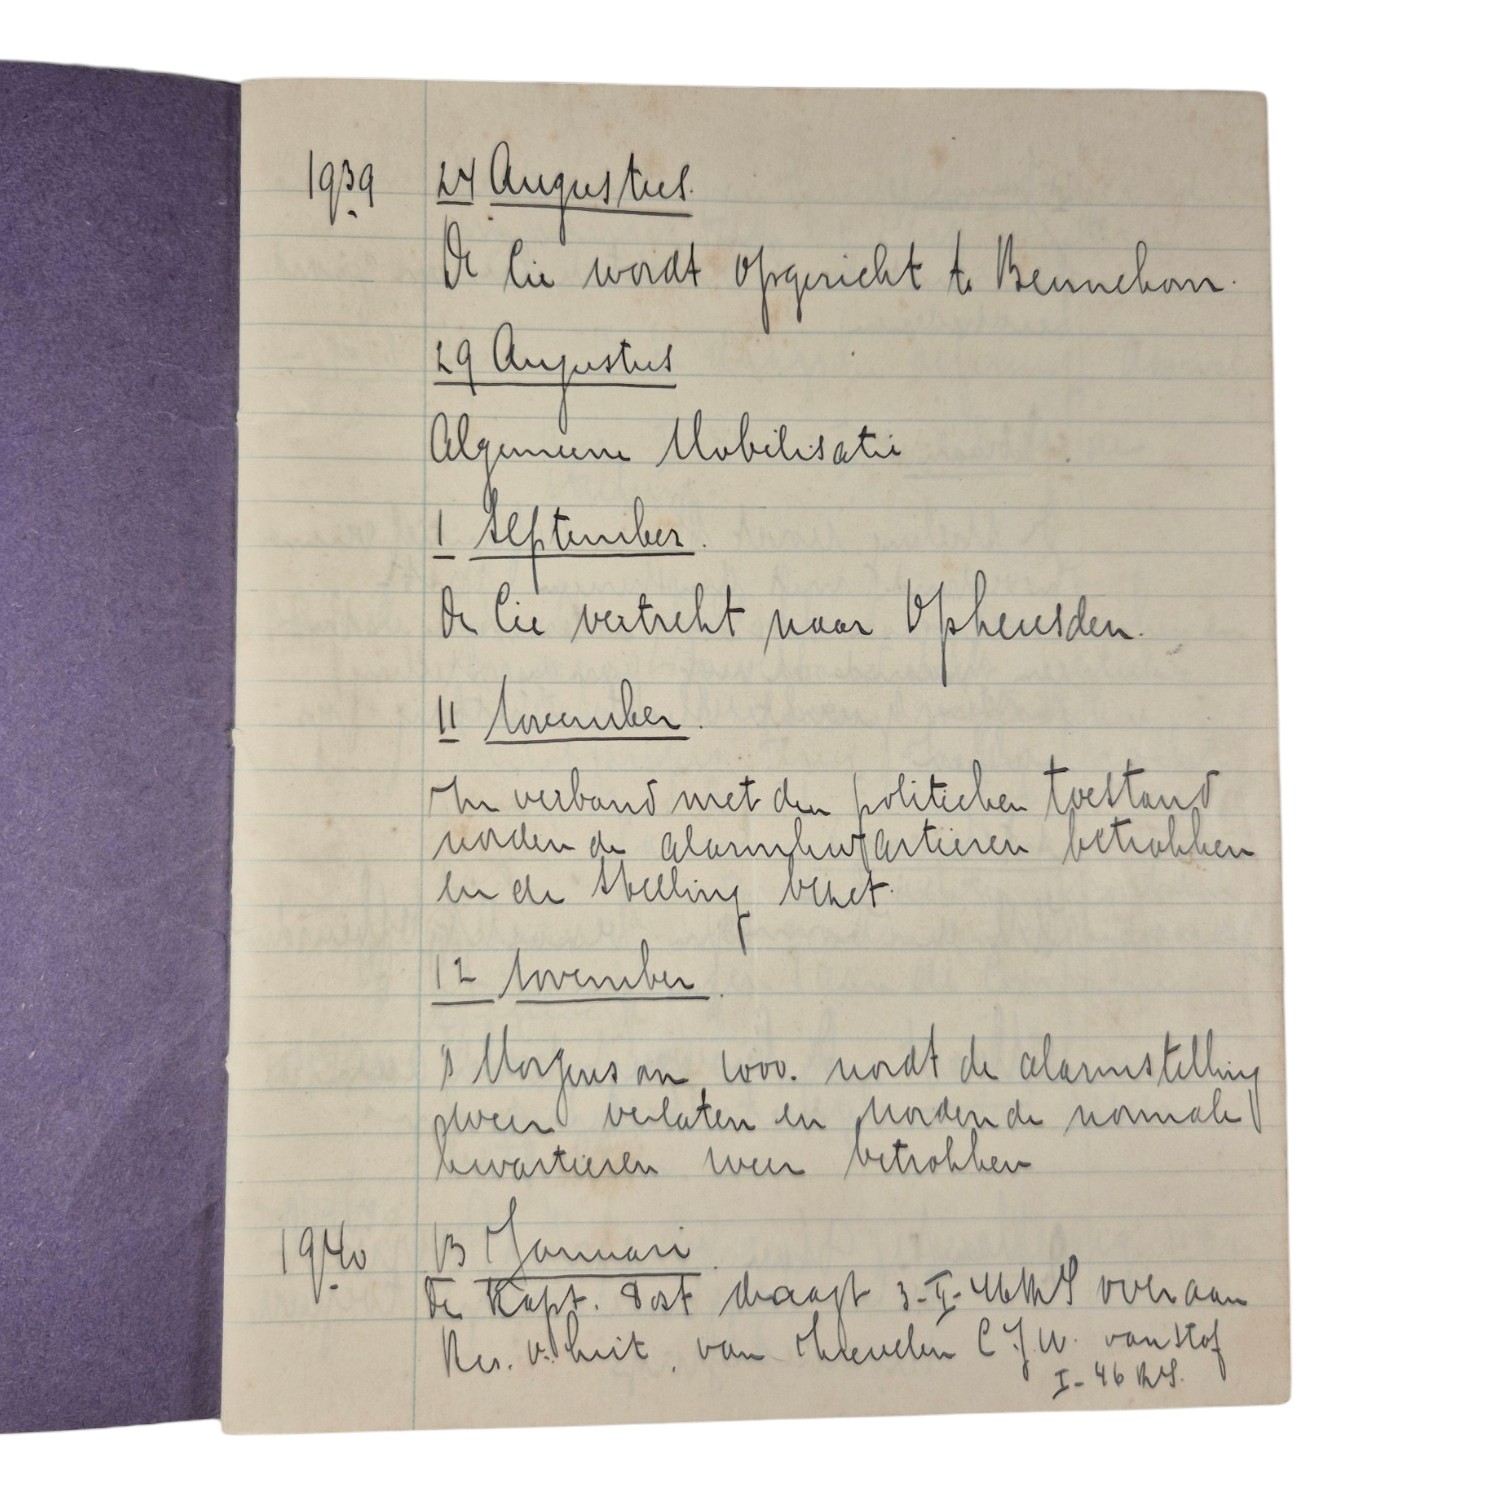 1939 24 Augustus.
De Cie wordt opgericht te Bennekom.
29 Augustus
Algemeene Mobilisatie
1 September.
De Cie vertrekt naar Opheusden.
11 November.
In verband met den politieken toestand
worden de alarmkwartieren betrokken
en de stelling bezet.
12 November.
's Morgens om 1000. wordt de alarmstelling
weer verlaten en worden de normale
kwartieren weer betrokken
1940 13 Januari.
De Kapt. Post draagt 3-II-46 R.I. over aan
Res. van C.J.W. van stof
I-46 R.I.